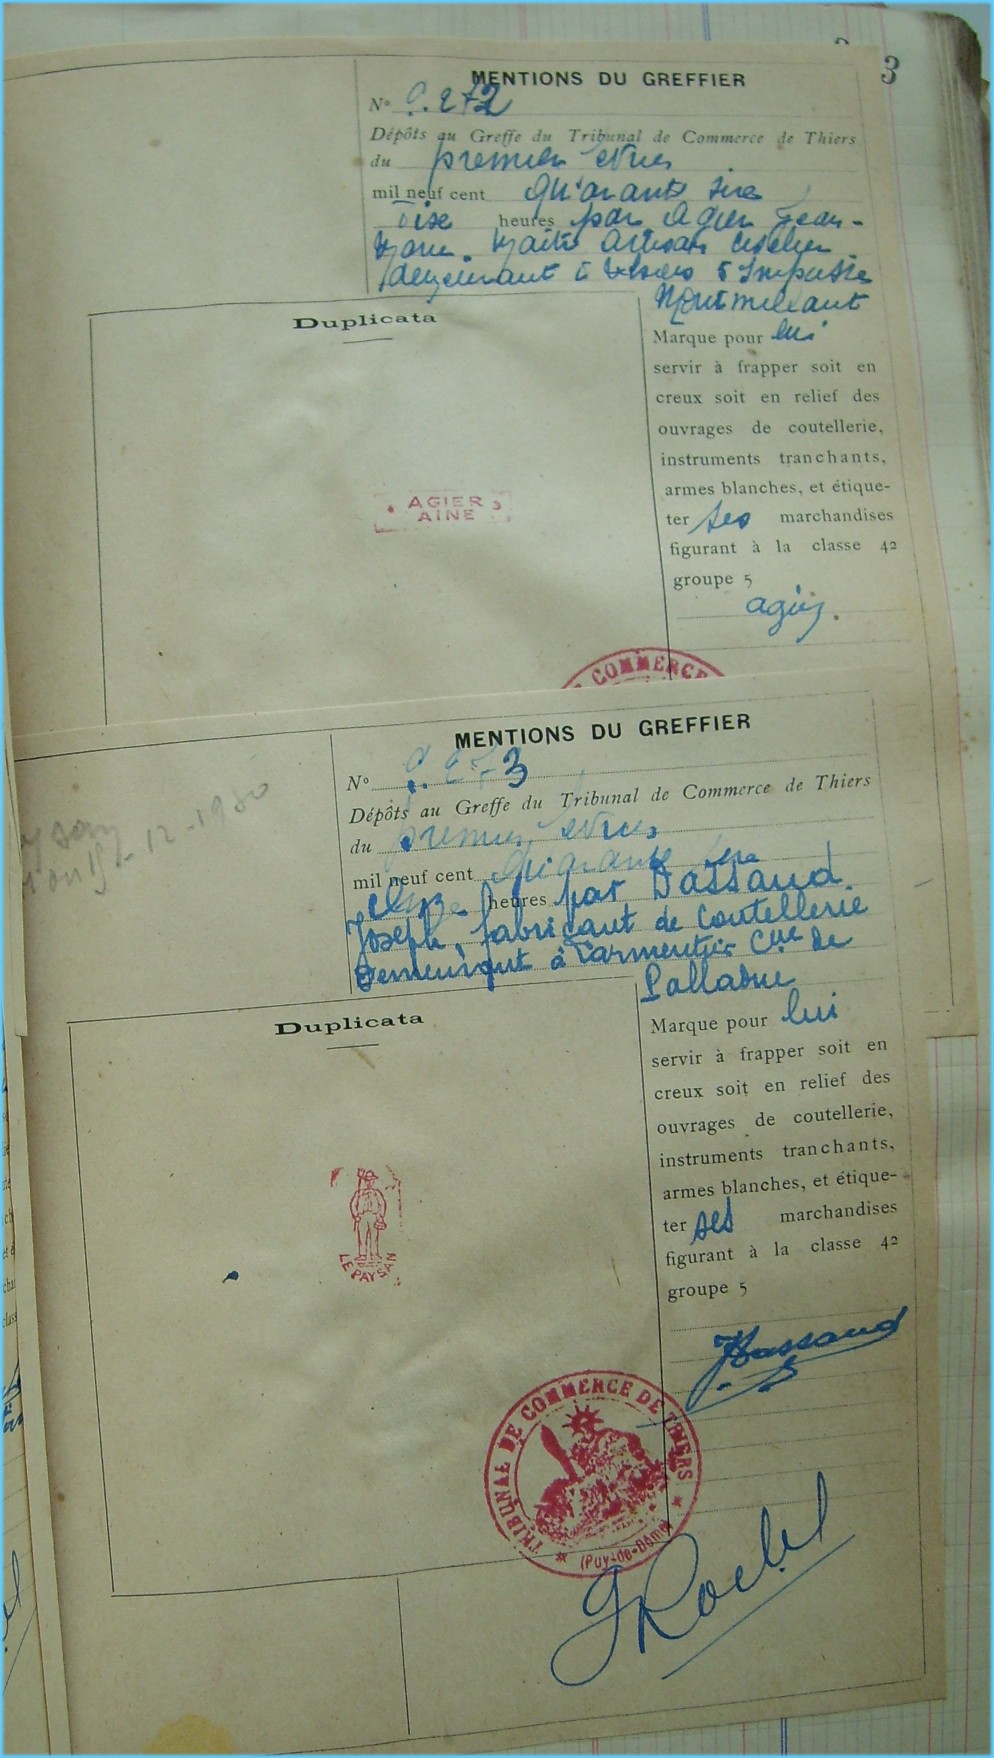 3
MENTIONS DU GREFFIER
N° 9.272
Dépôts au Greffe du Tribunal de Commerce de Thiers
du premier
mil neuf cent quarante
heures par Agier Jean-
Marie. Maître Artisan
demeurant à Impasse
Montmillant
Duplicata
Marque pour lui
servir à frapper soit en
creux soit en relief des
ouvrages de coutellerie,
instruments tranchants,
armes blanches, et étique-
ter ses marchandises
figurant à la classe 42
groupe 5
agier
AGIER
AINE
COMMERCE
MENTIONS DU GREFFIER
N° 9.273
Dépôts au Greffe du Tribunal de Commerce de Thiers
du premier
mil neuf cent quarante
heures par Dassaud
Joseph, fabricant de Coutellerie
Demeurant à Cne de
Palladuc
12-1950
Duplicata
Marque pour lui
servir à frapper soit en
creux soit en relief des
ouvrages de coutellerie,
instruments tranchants,
armes blanches, et étique-
ter ses marchandises
figurant à la classe 42
groupe 5
LE PAYSAN
JDassaud
TRIBUNAL DE COMMERCE DE THIERS
(Puy-de-Dôme)